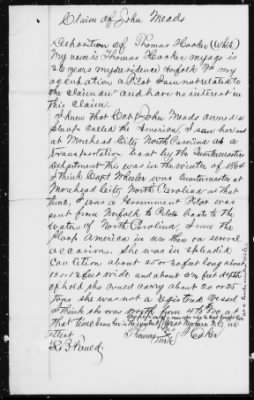 Claim of John Meads
Deposition of Thomas Hooker (White)
My name is Thomas Hooker my age is
26 years my residence Norfolk Va my
occupation a Pilot I am not related to
the claimant and have no interest in
this claim.
I know that Capt John Meads owned a
Sloop called the America, I saw her used
at Morehead City North Carolina as a
transportation boat by the Quartermaster
Department this was in the winter of 1864
I think Capt Wheeler was Quartermaster at
Morehead City North Carolina at that
time, I was a Government Pilot was
sent from Norfolk to Pilot boats to the
waters of North Carolina, I saw the
Sloop America in use then on several
occasions. She was in splendid
condition about 25 or 30 feet long about
12 or 13 feet wide and about 4½ feet depth
of hold she could carry about 20 or 25
tons she was not a registered vessel
I think she was worth from 4 to 500, at
that time
Attest Thomas Hooker